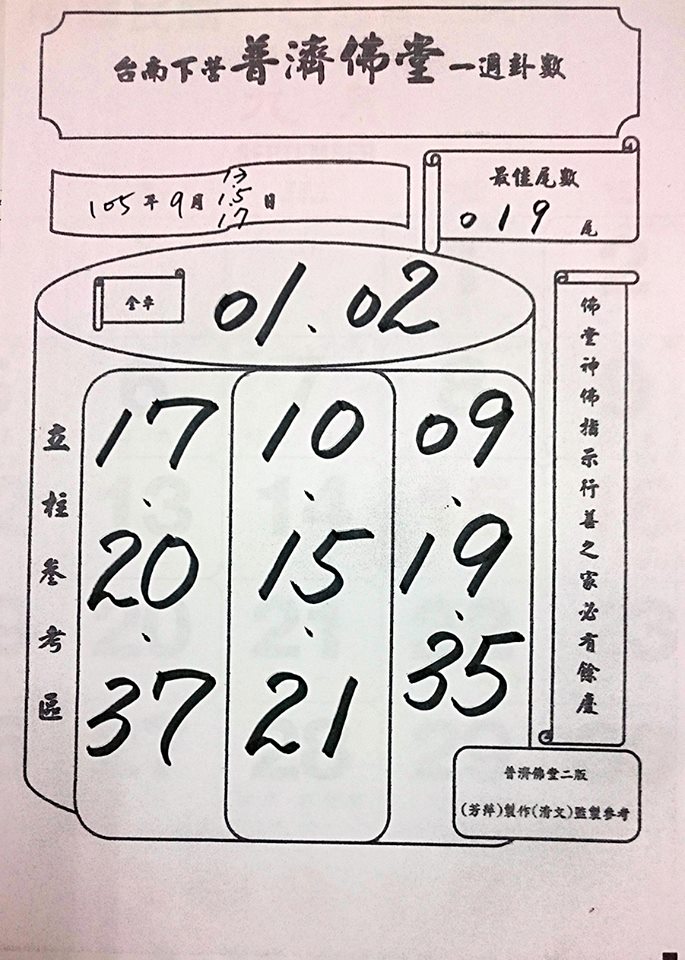 台南下營普濟佛堂一週卦數
105年9月13.15.17日
最佳尾數
019尾
全車
01、02
立柱參考區
17、20、37
10、15、21
09、19、35
佛堂神佛指示行善之家必有餘慶
普濟佛堂二版
(芳萍)製作(清文)監製參考